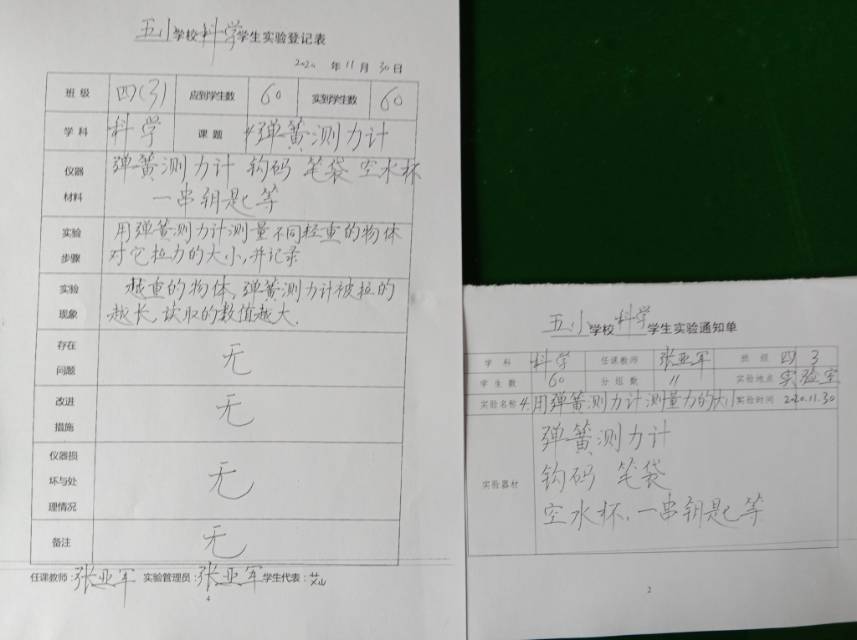 五小学校科学学生实验登记表
2020 年 11 月 30 日
班级 四(3) 应到学生数 60 实到学生数 60
学科 科学 课题 4.弹簧测力计
仪器材料 弹簧测力计 钩码 笔袋 空水杯
一串钥匙等
实验步骤 用弹簧测力计测量不同轻重的物体
对它拉力的大小,并记录
实验现象 越重的物体,弹簧测力计被拉的
越长,读取的数值越大.
存在问题 无
改进措施 无
仪器损坏与处理情况 无
备注 无
任课教师:张亚军 实验管理员:张亚军 学生代表:
4
五小学校科学学生实验通知单
学科 科学 任课教师 张亚军 班级 四 3
学生数 60 分组数 11 实验地点 实验室
实验名称 4.用弹簧测力计测量力的大小 实验时间 2020.11.30
实验器材 弹簧测力计
钩码 笔袋
空水杯,一串钥匙等
2